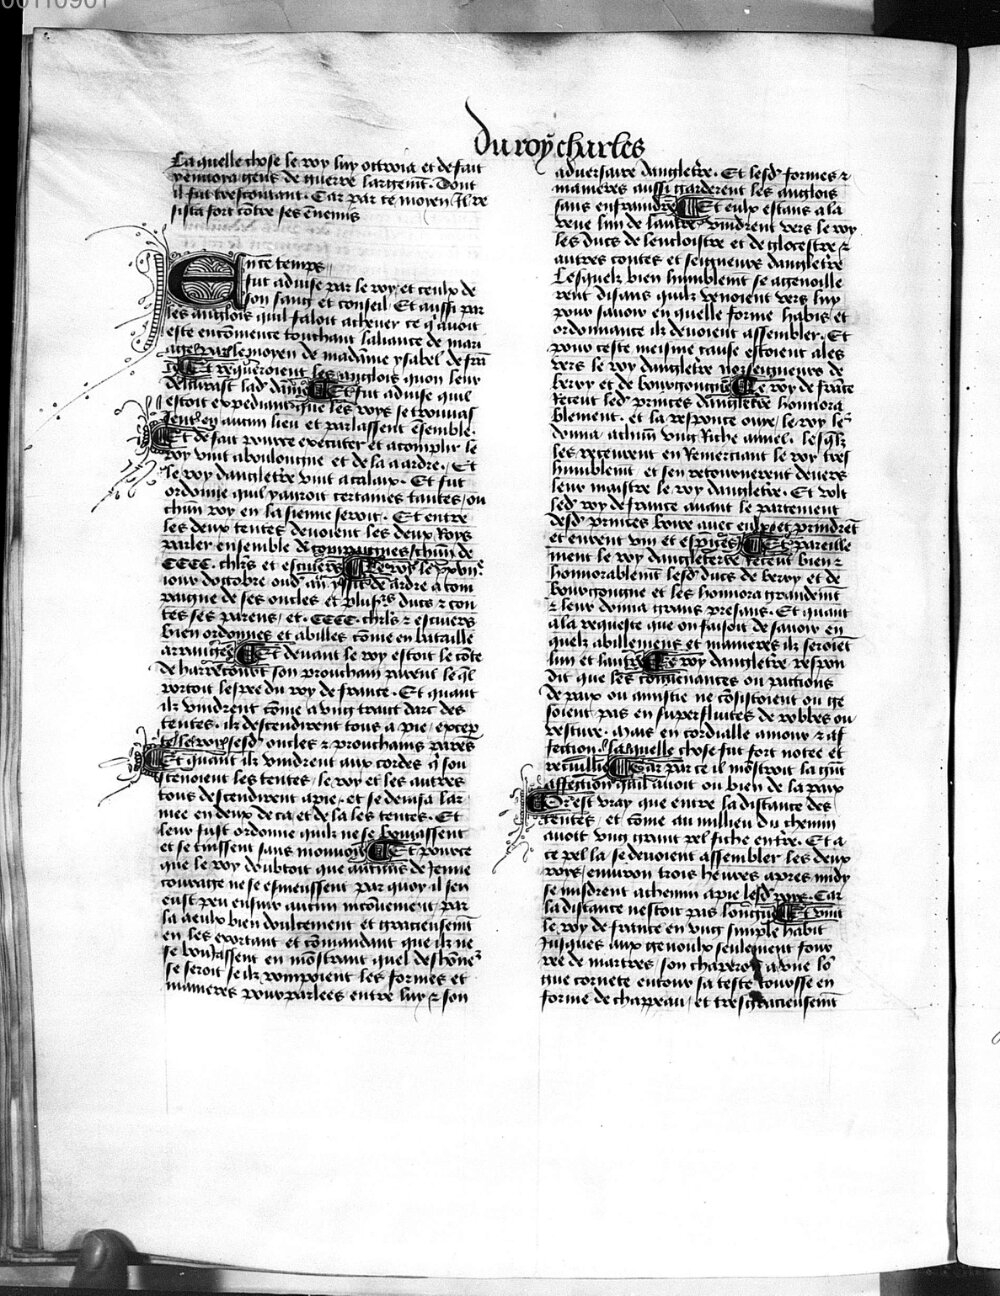 00110901
Du roy charles
La quelle chose le roy luy octroia et de fait
venitora gens de guerre largent. Dont
il fut trescontant. Car par ce moyen Il re
sista fort cōtre ses ēnemis
En ce temps
fut aduise par le roy et ceulx de
son sang et conseil Et aussi par
les anglois quil faloit acheuer ce q̄ auoit
este encōmence touchant laliance de mari
age par le moyen de madame ysabel de frā
ce Et requeroient les anglois quon leur
deliurast lad' dame Et fut aduise quil
estoit expedient que les roys se trouuas
sent en aucun lieu et parlassent ēsemble.
Et de fait pource executer et acomplir le
roy vint a boulongne et de la a ardre. Et
le roy dangletr̄e vint a calaix. Et fut
ordonne quil y auroit certaines tantes / ou
chūn roy en la sienne seroit. Et entre
les deux tentes deuoient les deux Roys
parler ensemble de compaignes / chūn de
CCCC. chlrs et escuiers Le roy le xxvii.e
iour doctobre oud' an de ardre acom
paigne de ses oncles et plusrs ducs ⁊ con
tes ses parens / et. CCCC. chlrs ⁊ escuiers
bien ordonnes et abilles cōme en bataille
arrangee Et deuant le roy estoit le cōte
de harrecourt son prouchain parent le ql
portoit lespee du roy de france. Et quant
ilz vindrent cōme a vng trait darc des
tentes. ilz descendirent tous a pie / excep
te le roy sesd' oncles ⁊ prouchains parēs
Et quant ilz vindrent aux cordes q̄ sou
stenoient les tentes / le roy et les autres
tous descendirent a pie. et se deuisa lar
mee en deux de ca et de la les tentes. Et
leur fust ordonne quilz ne se boujassent
et se tinssent sans mouuoir Et pource
que le roy doubtoit que aucuns de Jenne
courage ne se esmeussent par quoy il sen
eust peu ensuir aucun incōuenient / par
la a eulx bien doulcement et gracieusemt
en les exortant et cōmandant que ilz ne
se boujassent en mōstrant quel deshōner
se seroit se ilz rompoient les formes et
manieres pourparlees entre luy ⁊ son
aduersaire dangletr̄e. Et lesd' formes ⁊
manieres aussi garderent les anglois
sans enfraindre Et eulx estans a la
veue lun de lautre vindrent vers le roy
les ducs de lencloistre et de glocestre ⁊
autres contes et seigneurs dangletr̄e
Lesquelz bien humblemt se agenoille
rent disans quilz venoient vers luy
pour sauoir en quelle forme habis et
ordonnance ilz deuoient assembler. Et
pour ceste meisme cause estoient ales
vers le roy dangletr̄e noz seigneurs de
berry et de bourgongne Le roy de frāce
Receut lesd' princes dangletr̄e honnora
blement. et la responce ouye / le roy ler
donna a chūn vng Riche annel. lesqlz
les receurent en Remerciant le roy tres
humblemt et sen retournerent deuers
leur maistre le roy dangletr̄e. Et volt
led' roy de france auant le partement
desd' princes boire auec eulx et prindrēt
et eurent vin et espices Et pareille
ment le roy dangleterre receut bien ⁊
honnorablemt lesd' ducs de berry et de
bourgongne et les honnora grandemt
⁊ leur donna grans presans. Et quant
a la requeste que on faisoit de sauoir en
quelz abillemens et manieres ilz seroiēt
lun et lautre Le roy dangletr̄e respon
dit que les conuenances ou pactions
de paix ou amistie ne cōsistoient ou ge
soient pas en superfluites de robbes ou
vesture. Mais en cordialle amour ⁊ af
fection. laquelle chose fut fort notee et
recuillie Car par ce il mōstroit la gñt
affection quil auoit ou bien de la paix
Or est vray que entre la distance des
tentes / et cōme au millieu du chemin
auoit vng grant pel fiche entre. Et a
ce pel la se deuoient assembler les deux
roys / enuiron trois heures apres midy
se misdrent a chemin a pie lesd' roys. Car
la distance nestoit pas longue Et vint
le roy de france en vng simple habit
Jusques aux genoulx seulement four
re de martres / son chaperon a vne lō
gue cornete entour sa teste tourse en
forme de chappeau / et tresgracieusemt